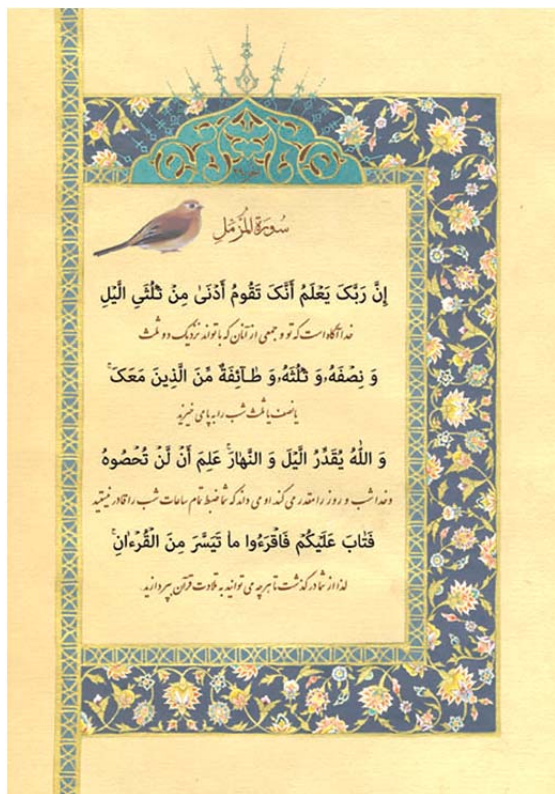 سُورَةُ المُزَّمِّلِ
إِنَّ رَبَّکَ يَعۡلَمُ أَنَّکَ تَقُومُ أَدۡنَىٰ مِنۡ ثُلُثَيِ الَّيۡلِ
خدا آگاه است که تو و جمعی از آنان که با تواند نزدیک دو ثلث
وَ نِصۡفَهُۥ وَ ثُلُثَهُۥ وَ طَـآئِفَةٌ مِّنَ الَّذِينَ مَعَکَۚ
یا نصف یا ثلث شب را به پا می خیزید
وَ اللّٰهُ يُقَدِّرُ الَّيۡلَ وَ النَّهٰارَۚ عَلِمَ أَنۡ لَّنۡ تُحۡصُوهُ
و خدا شب و روز را مقدر می کند او می داند که شما ضبط تمام ساعات شب را قادر نیستید
فَتٰابَ عَلَيۡکُمۡ فَاقۡرَءُوا مٰا تَيَسَّرَ مِنَ الۡقُرۡءٰانِۚ
لذا از شما در گذشت تا هر چه می توانید به تلاوت قرآن بپردازید.